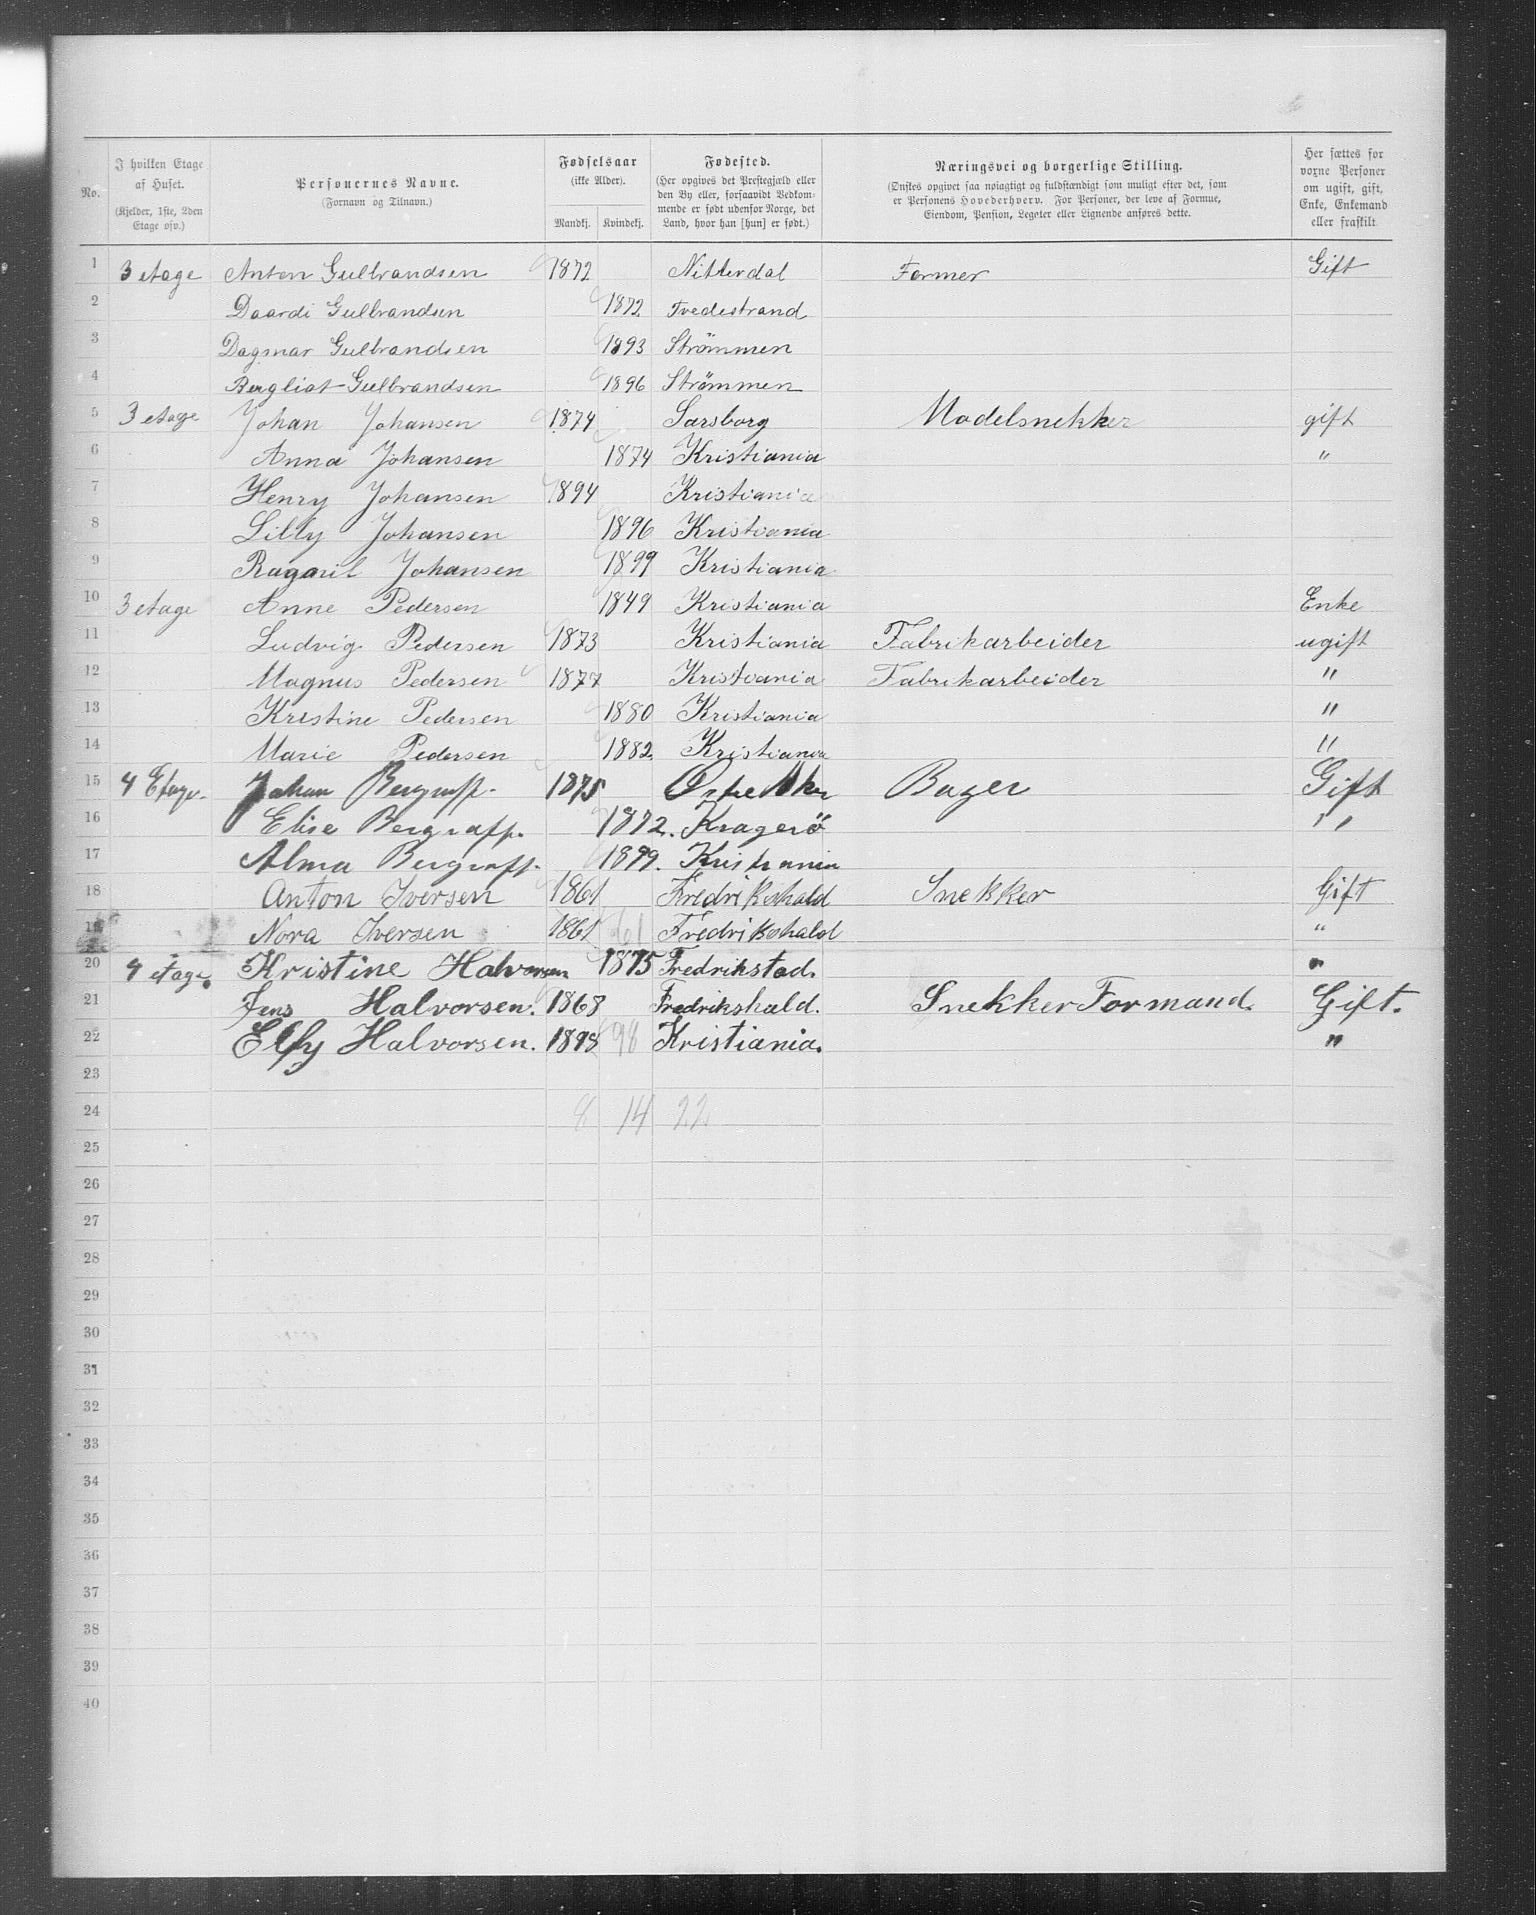 No.
I hvilken Etage af Huset. (Kjelder, 1ste, 2den Etage osv.)
Personernes Navne. (Fornavn og Tilnavn.)
Fødselsaar (ikke Alder). Mandkj. Kvindekj.
Fødested. (Her opgives det Prestegjæld eller den By eller, forsaavidt Vedkommende er født udenfor Norge, det Land, hvor han [hun] er født.)
Næringsvei og borgerlige Stilling. (Ønskes opgivet saa nøiagtigt og fuldstændigt som muligt efter det, som er Personens Hovederhverv. For Personer, der leve af Formue, Eiendom, Pension, Legater eller Lignende anføres dette.
Her sættes for voxne Personer om ugift, gift, Enke, Enkemand eller fraskilt
1 3 etage Anton Gulbrandsen 1872 Nitterdal Former Gift
2 Daardi Gulbrandsen 1872 Tvedestrand
3 Dagmar Gulbrandsen 1893 Strömmen
4 Bergliot Gulbrandsen 1896 Strömmen
5 3 etage Johan Johansen 1874 Sarsborg Modelsnekker gift
6 Anna Johansen 1874 Kristiania "
7 Henry Johansen 1894 Kristiania
8 Lilly Johansen 1896 Kristiania
9 Ragnil Johansen 1899 Kristiania
10 3 etage Anne Pedersen 1849 Kristiania Enke
11 Ludvig Pedersen 1873 Kristiania Fabrikarbeider ugift
12 Magnus Pedersen 1877 Kristiania Fabrikarbeider "
13 Kristine Pedersen 1880 Kristiania "
14 Marie Pedersen 1882 Kristiania "
15 4 Etage. Johan Bergraff. 1875 Østre Aker Bager Gift
16 Elise Bergraff. 1872. Kragerö "
17 Alma Bergraff. 1899. Kristiania
18 Anton Iversen 1861 Fredrikshald Snekker Gift
19 Nora Iversen 1861 61 Fredrikshald "
20 4 etage. Kristine Halvorsen 1875 Fredrikstad. "
21 Jens Halvorsen. 1868 Fredrikshald. Snekker Formand. Gift.
22 Elfy Halvorsen. 1898 98 Kristiania. "
23
24 8 14 22
25
26
27
28
29
30
31
32
33
34
35
36
37
38
39
40